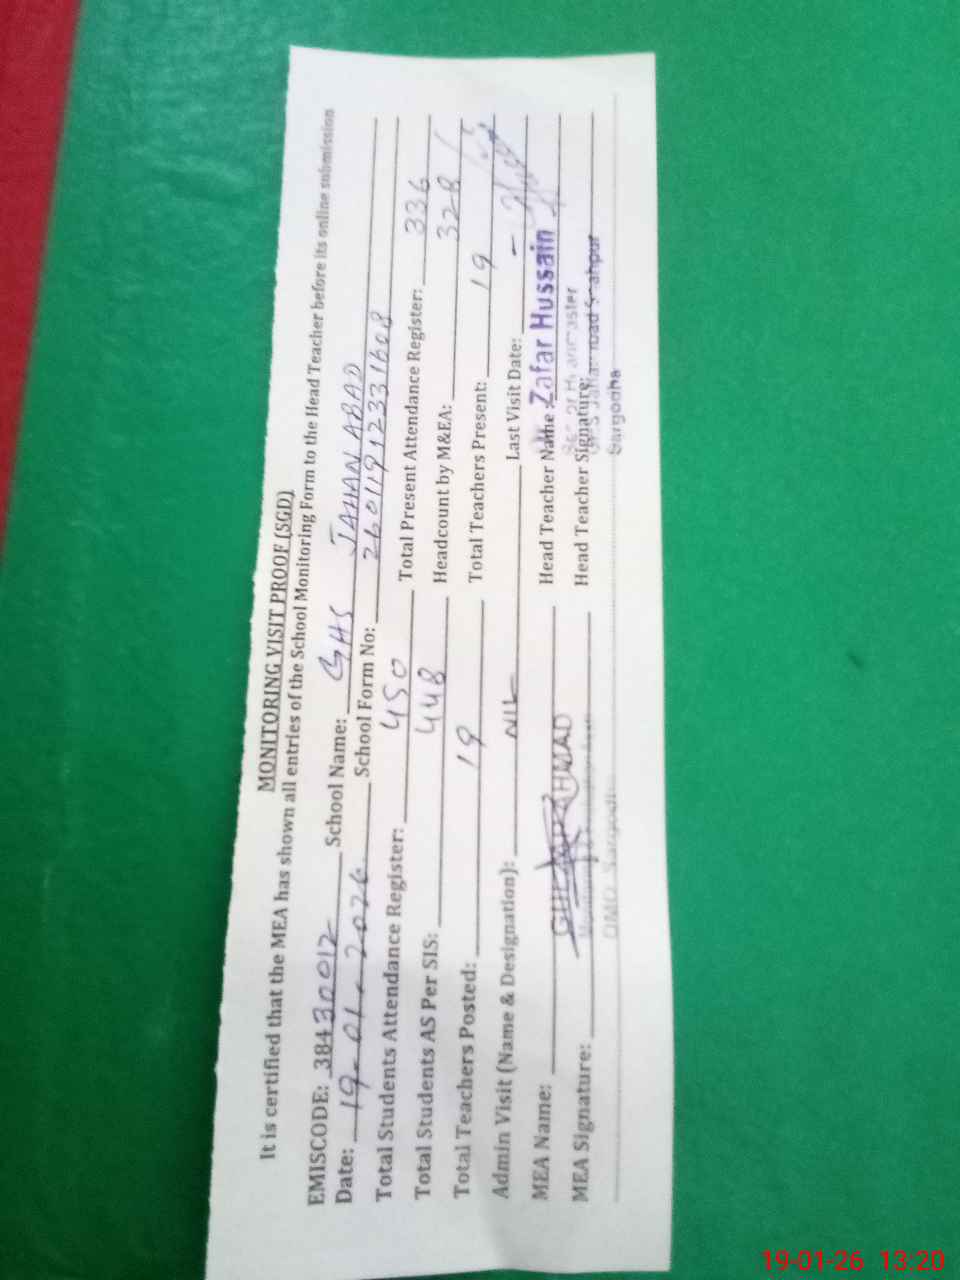 MONITORING VISIT PROOF (SGD)
It is certified that the MEA has shown all entries of the School Monitoring Form to the Head Teacher before its online submission
EMISCODE: 38430012 School Name: GHS JAHANABAD
Date: 19-01-2026 School Form No: 26011912331608
Total Students Attendance Register: 450 Total Present Attendance Register: 336
Total Students AS Per SIS: 448 Headcount by M&EA: 328
Total Teachers Posted: 19 Total Teachers Present: 19
Admin Visit (Name & Designation): NIL Last Visit Date: -
MEA Name: AHMAD Head Teacher Name: Zafar Hussain
MEA Signature: Head Teacher Signature:
DMO Sargodha
Sargodha
19-01-26 13:20